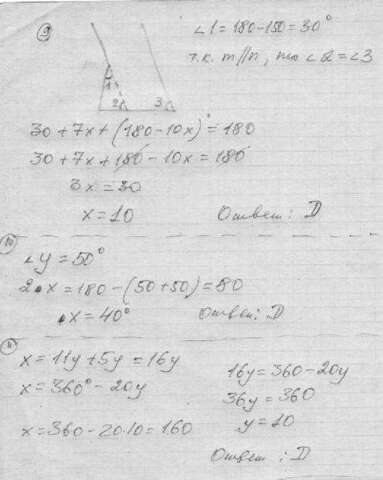 9
∠1 = 180-150 = 30°
т.к. m//n, то ∠2 = ∠3
1
2 3
30 + 7x + (180 - 10x)° = 180
30 + 7x + 180 - 10x = 180
3x = 30
x = 10 Ответ: D
10
∠y = 50°
2•x = 180 - (50+50) = 80
•x = 40° Ответ: D
11
x = 11y + 5y = 16y
x = 360° - 20y
16y = 360 - 20y
36y = 360
y = 10
x = 360 - 20·10 = 160
Ответ: D